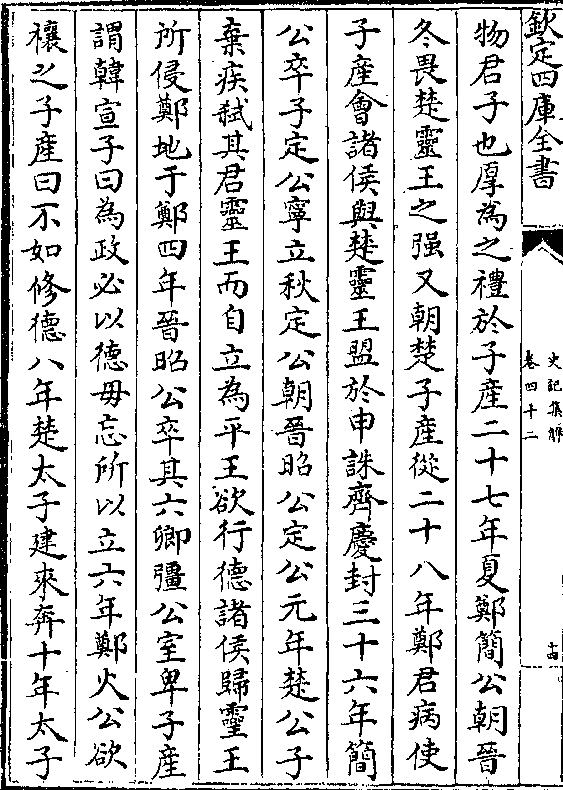 欽定四庫全書
史記集解
卷四十二
十四
物君子也厚為之禮於子產二十七年夏鄭簡公朝晉
冬畏楚靈王之强又朝楚子產從二十八年鄭君病使
子產會諸侯與楚靈王盟於申誅齊慶封三十六年簡
公卒子定公寧立秋定公朝晉昭公定公元年楚公子
棄疾弑其君靈王而自立為平王欲行德諸侯歸靈王
所侵鄭地于鄭四年晉昭公卒其六卿彊公室卑子產
謂韓宣子曰為政必以德毋忘所以立六年鄭火公欲
禳之子產曰不如修德八年楚太子建來奔十年太子